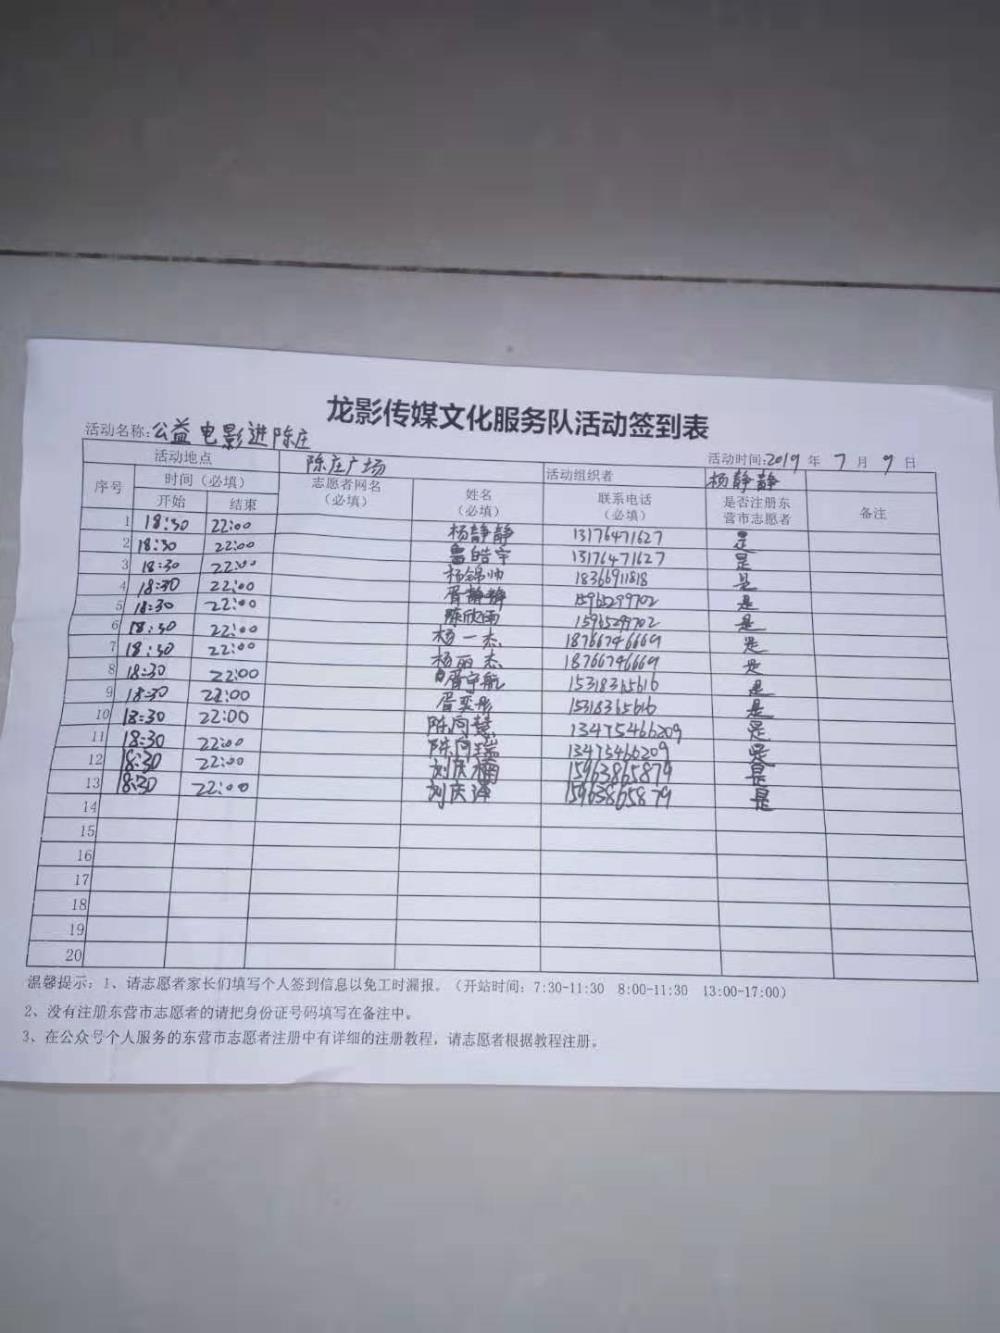 龙影传媒文化服务队活动签到表
活动名称:公益电影进陈庄 活动时间:2019年7月9日
活动地点 陈庄广场 活动组织者 杨静静
序号 时间（必填） 志愿者网名（必填） 姓名（必填） 联系电话（必填） 是否注册东营市志愿者 备注
开始 结束
1 18:30 22:00 杨静静 13176471627 是
2 18:30 22:00 皓宇 13176471627 是
3 18:30 22:00 杨锦帅 18366911818 是
4 18:30 22:00 胥静静 15965299702 是
5 18:30 22:00 陈欣雨 1596529702 是
6 18:30 22:00 杨一杰 18766746669 是
7 18:30 22:00 杨丽杰 18766746669 是
8 18:30 22:00 胥宇航 15318365616 是
9 18:30 22:00 胥奕彤 15318365616 是
10 18:30 22:00 陈向慧 13475466209 是
11 18:30 22:00 陈向瑞 13475466209 是
12 18:30 22:00 刘庆楠 15963865879 是
13 18:30 22:00 刘庆泽 15963865879 是
14
15
16
17
18
19
20
温馨提示：1、请志愿者家长们填写个人签到信息以免工时漏报。（开站时间：7:30-11:30 8:00-11:30 13:00-17:00）
2、没有注册东营市志愿者的请把身份证号码填写在备注中。
3、在公众号个人服务的东营市志愿者注册中有详细的注册教程，请志愿者根据教程注册。